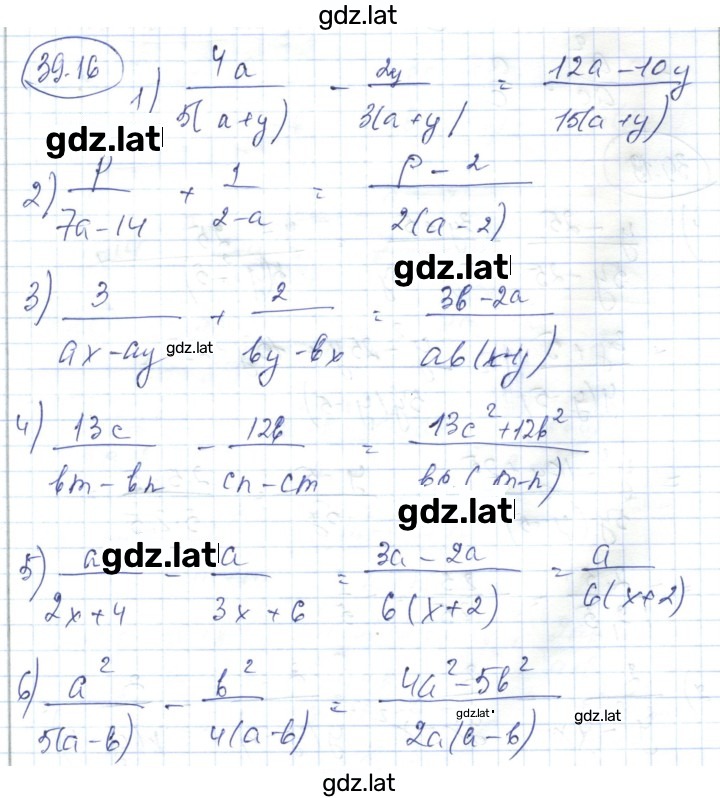 gdz.lat
39.16
1) 4a / 5(a+y) - 2y / 3(a+y) = 12a-10y / 15(a+y)
gdz.lat
2) p / 7a-14 + 1 / 2-a = p-2 / 2(a-2)
gdz.lat
3) 3 / ax-ay + 2 / by-bx = 3b-2a / ab(x-y)
gdz.lat
4) 13c / bm-bn - 12b / cn-cm = 13c²+12b² / (m-n)
gdz.lat
5) a / 2x+4 - a / 3x+6 = 3a-2a / 6(x+2) = a / 6(x+2)
gdz.lat
6) a² / 5(a-b) - b² / 4(a-b) = 4a²-5b² / 2a(a-b)
gdz.lat
gdz.lat
gdz.lat